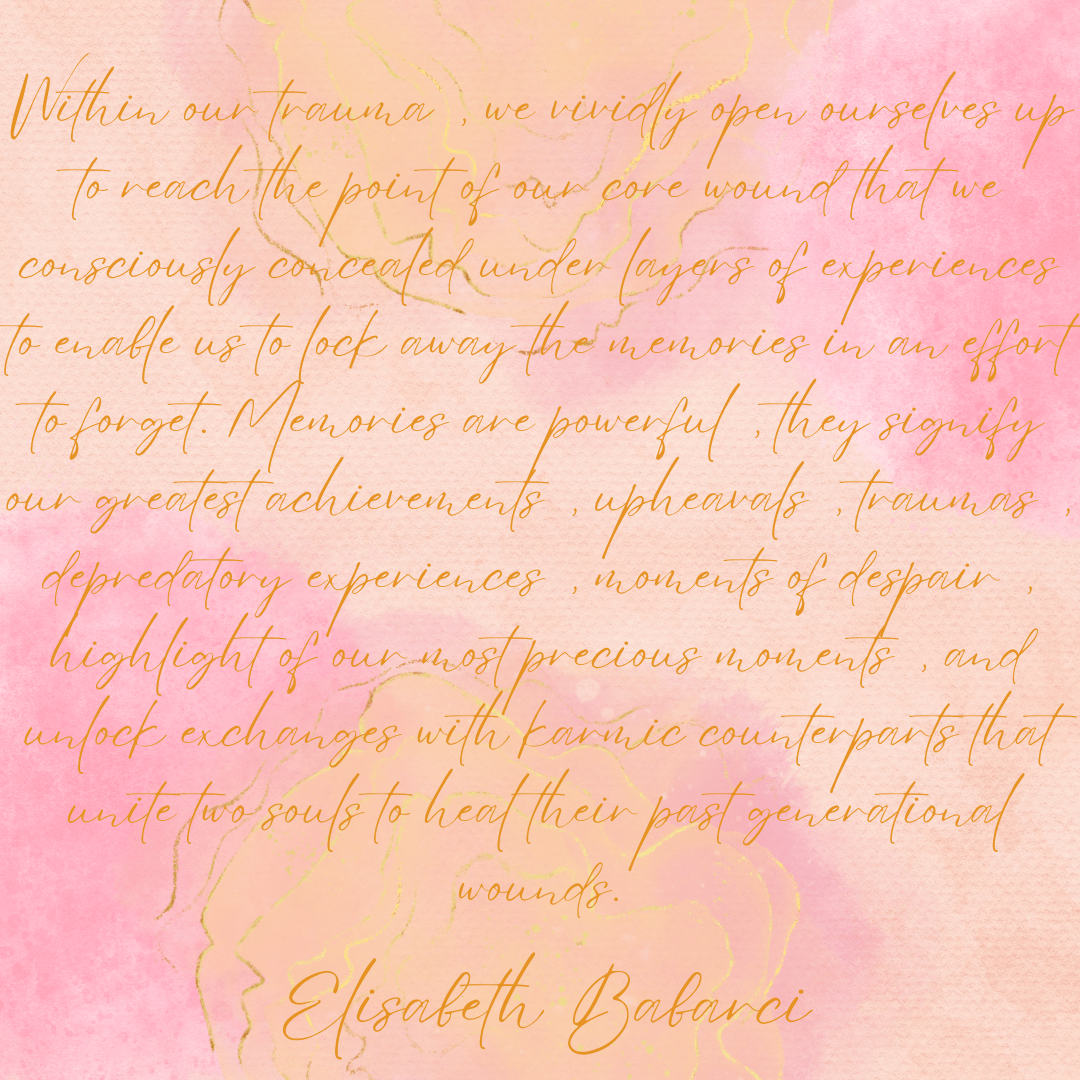 Within our trauma , we vividly open ourselves up
to reach the point of our core wound that we
consciously concealed under layers of experiences
to enable us to lock away the memories in an effort
to forget. Memories are powerful , they signify
our greatest achievements , upheavals , traumas ,
depredatory experiences , moments of despair ,
highlight of our most precious moments , and
unlock exchanges with karmic counterparts that
unite two souls to heal their past generational
wounds.
Elisabeth Babarci